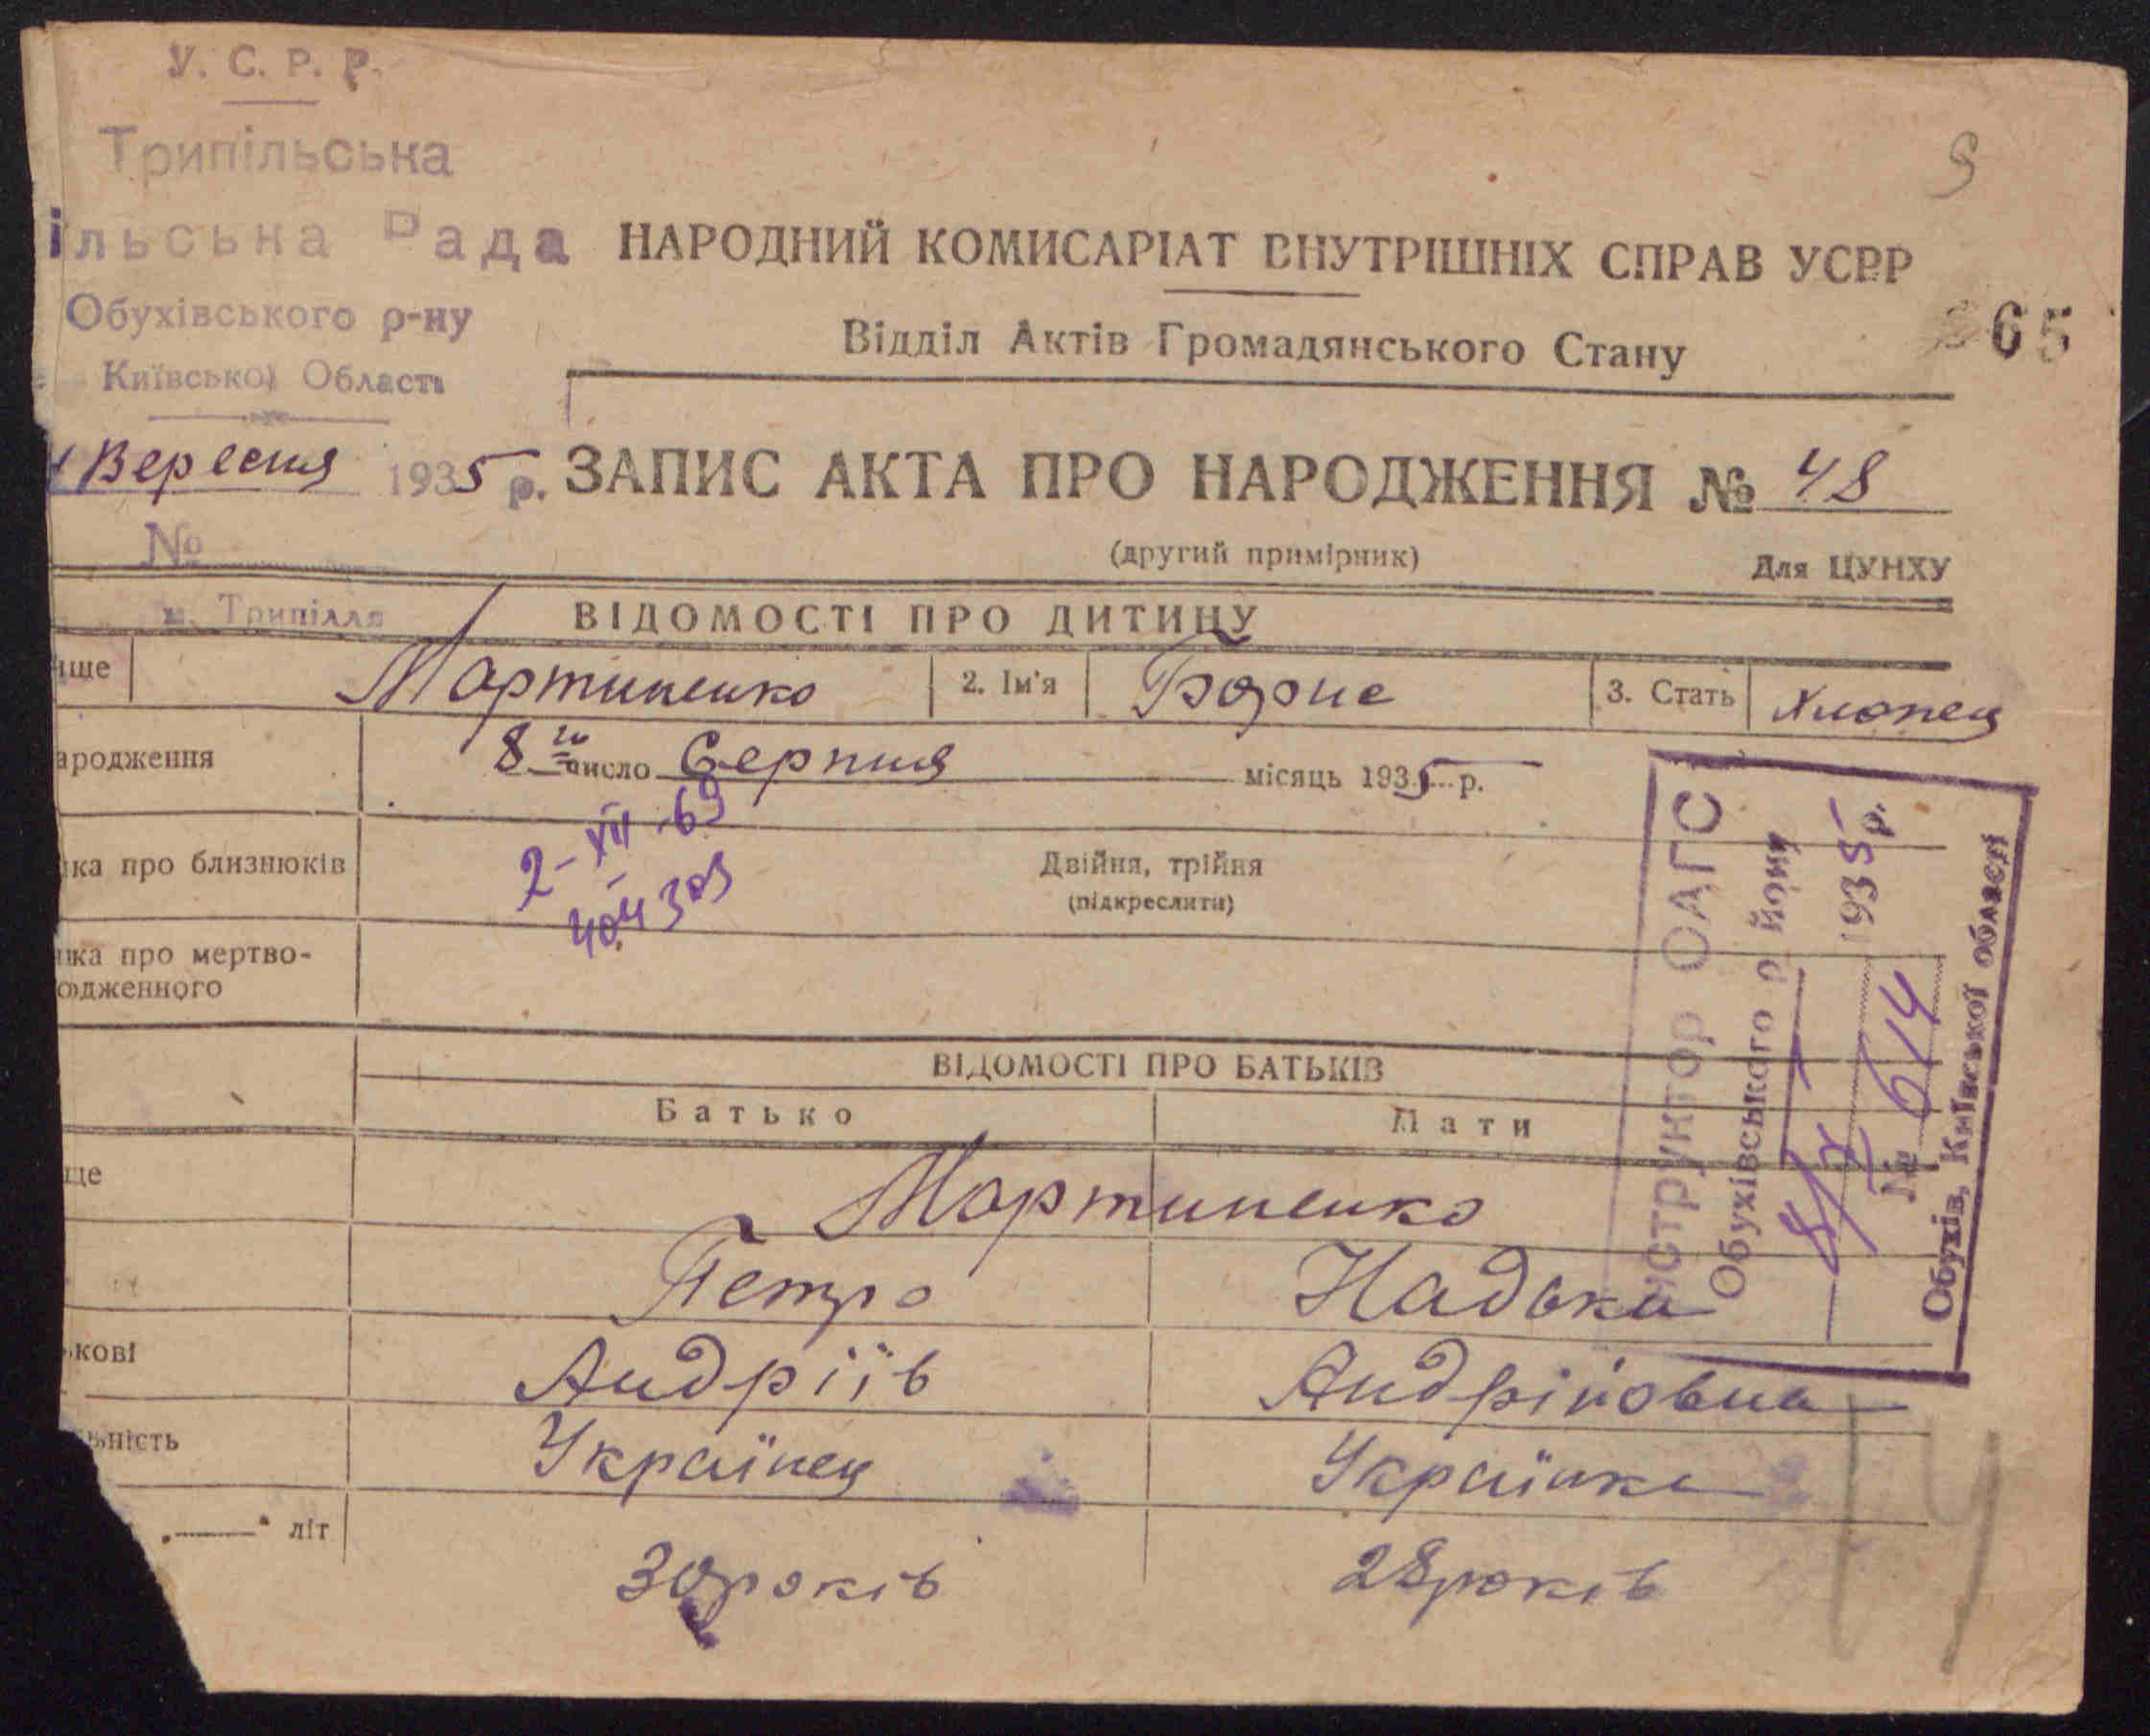 У. С. Р. Р.
Трипільська
ільська Рада
Обухівського р-ну
Київської Области
Вересня 1935 р.
№
м. Трипілля
9
НАРОДНИЙ КОМИСАРІАТ ВНУТРІШНІХ СПРАВ УСРР
65
Відділ Актів Громадянського Стану
ЗАПИС АКТА ПРО НАРОДЖЕННЯ № 48
(другий примірник) Для ЦУНХУ
ВІДОМОСТІ ПРО ДИТИНУ
ище Мартиненко 2. Ім'я Борис 3. Стать Хлопец
ародження 8го число Серпня місяць 1935 р.
2-XII-69
404309
ка про близнюків Двійня, трійня
(підкреслити)
ка про мертво-
одженного
ВІДОМОСТІ ПРО БАТЬКІВ
Батько Мати
ще Мартиненко
Петро Надька
ькові Андріїв Андріівна
ьність Українец Українка
„ — “ літ 30 років 28 років
нструктор ОАГС
Обухівського р йону
8/X 1935 р.
№ 614
Обухів, Київської області